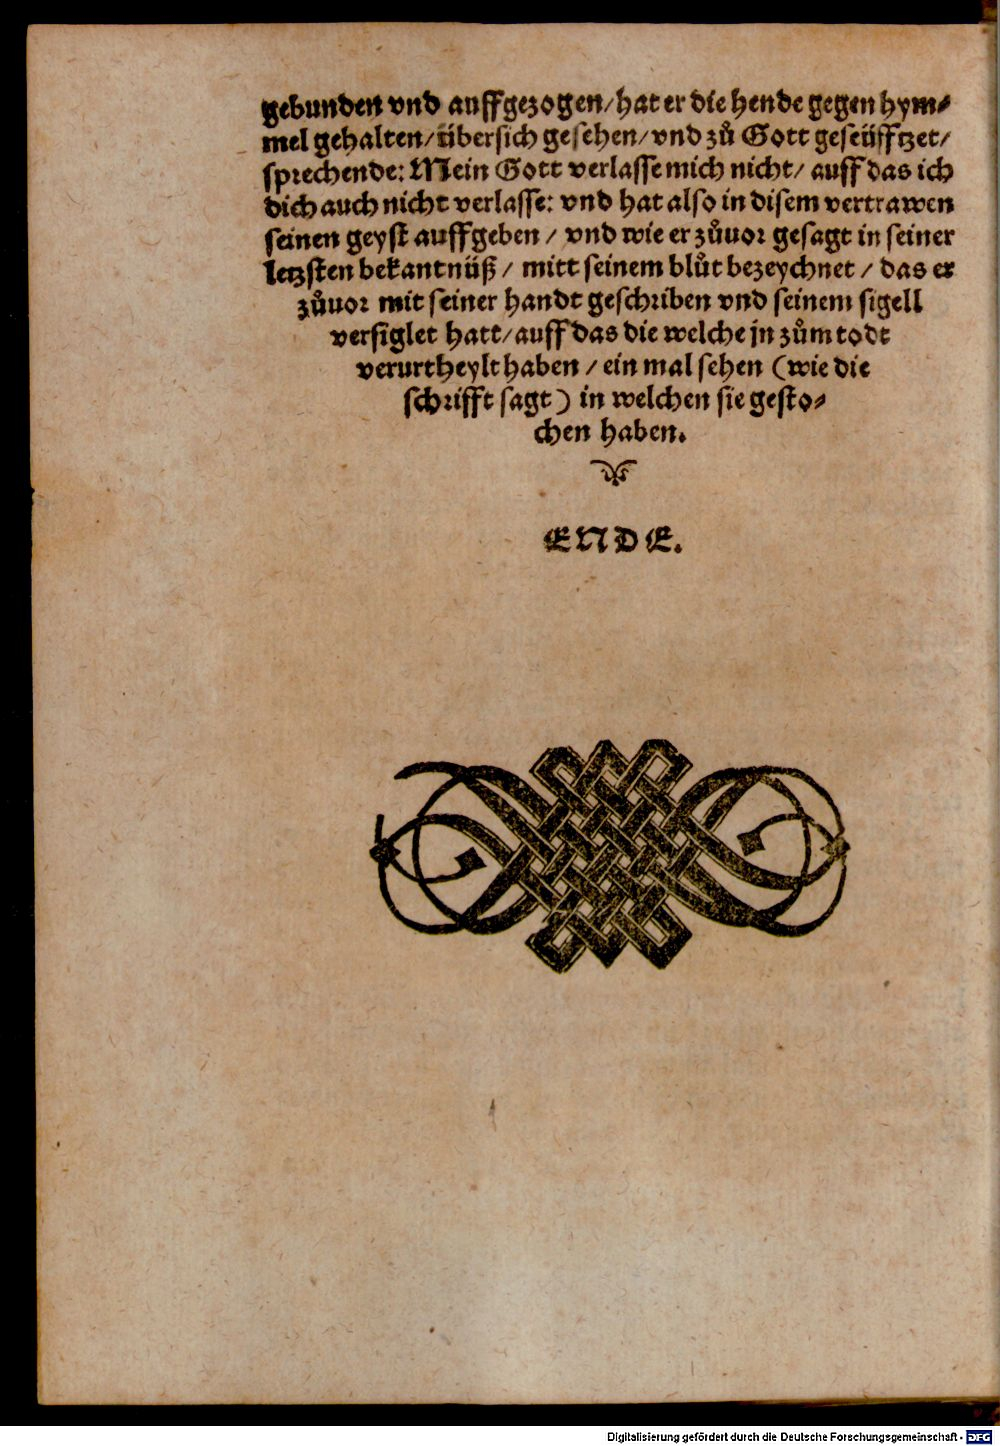 gebunden vnd auffgezogen/hat er die hende gegen hym⸗
mel gehalten/übersich gesehen/vnd zů Gott geseüfftzet/
sprechende: Mein Gott verlasse mich nicht/ auff das ich
dich auch nicht verlasse: vnd hat also in disem vertrawen
seinen geyst auffgeben / vnd wie er zůuor gesagt in seiner
letzsten bekantnüß / mitt seinem blůt bezeychnet / das er
zůuor mit seiner handt geschriben vnd seinem sigell
versiglet hatt/auff das die welche jn zům todt
verurtheylt haben / ein mal sehen (wie die
schrifft sagt) in welchen sie gesto⸗
chen haben.
ENDE.
Digitalisierung gefördert durch die Deutsche Forschungsgemeinschaft - DFG